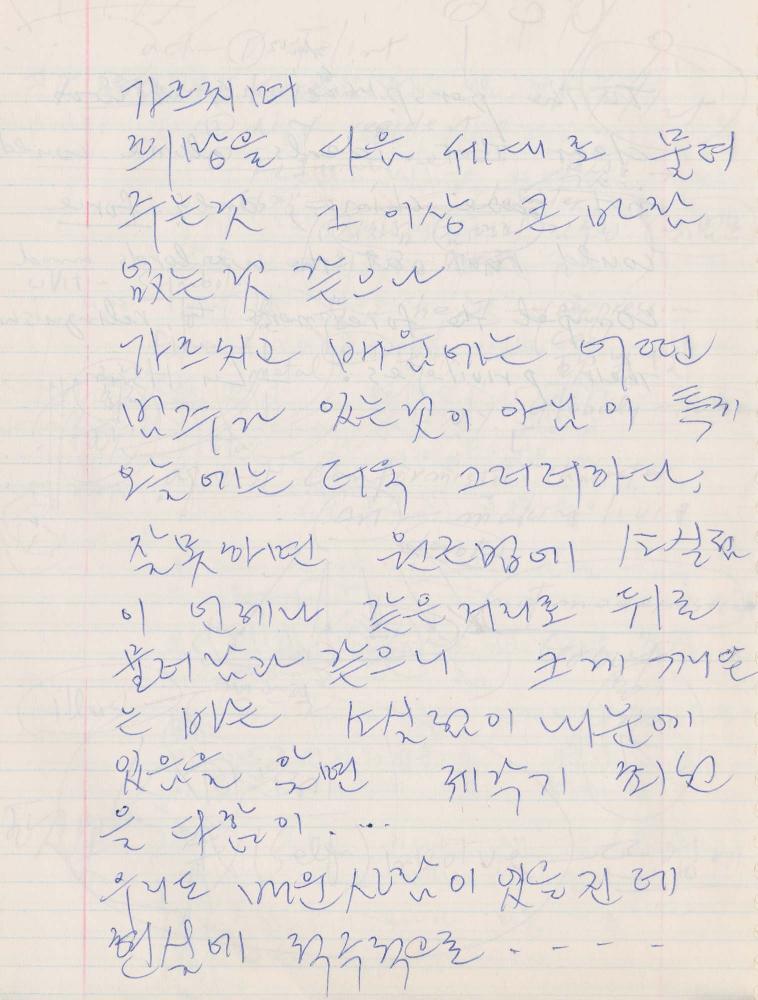 가르치며
희망을 다음 세대로 물려
주는것 그 이상 큰 바람
없는것 같으나
가르치고 배움에는 어떤
범주가 있는것이 아님이 특히
오늘에는 더욱 그러러하나,
잘못하면 원근법에 소실점
이 언제나 같은거리로 뒤로
물러남과 같으니 크게 깨닫
는 바는 소실점이 내눈에
있음을 알면 제각기 최선
을 다함이 . ...
우리도 배운사람이 였을진데
현실에 적극적으로 - - - -